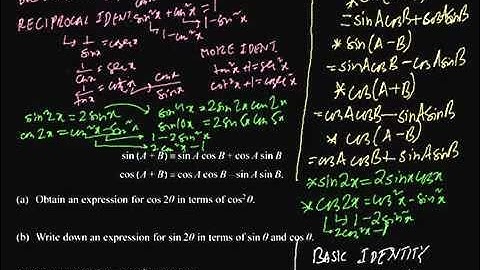 sin²x + cos²x = 1
RECIPROCAL IDENT
1 - sin²x
1 - cos²x
1/sinx = cosecx
1/cosx = secx
1/tanx = cotx
cosx/sinx
MORE IDENT
tan²x + 1 = sec²x
cot²x + 1 = cosec²x
sin2x = 2sinx
sin4x = 2sin2x cos2x
cos2x = cos²x - sin²x
sin10x = 2sin5x cos5x
1 - 2sin²x
2cos²x - 1
sin (A + B) ≡ sin A cos B + cos A sin B
cos (A + B) ≡ cos A cos B – sin A sin B.
(a) Obtain an expression for cos 2θ in terms of cos²θ.
(b) Write down an expression for sin 2θ in terms of sin θ and cos θ.
= sinAcosB + cosAsinB
* sin(A-B)
= sinAcosB - cosAsinB
* cos(A+B)
= cosAcosB - sinAsinB
* cos(A-B)
= cosAcosB + sinAsinB
* sin2x = 2sinxcosx
* cos2x = cos²x - sin²x
1 - 2sin²x
2cos²x - 1
BASIC IDENTITY